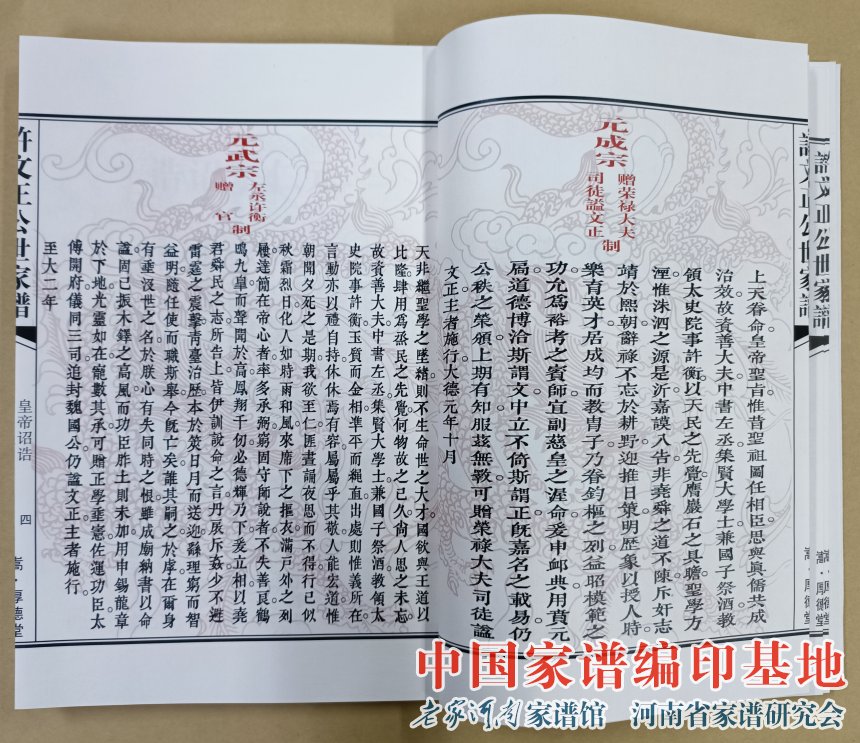 許文正公世家譜
元成宗
赠荣禄大夫
司徒謚文正
制
上天眷命皇帝聖旨惟昔聖祖圖任相臣思與真儒共成
治效故資善大夫中書左丞集賢大學士兼國子祭酒教
領太史院事許衡以天民之先覺膺巖石之具瞻聖學方
湮惟洙泗之源是沂嘉謨入告非堯舜之道不陳斥奸志
靖於熙朝辭祿不忘於耕野迎推日策明歷象以授人時
樂育英才居成均而教冑子乃眷鈞樞之列益昭模範之
功允爲裕考之賓師宣副慈皇之渥命爰申卹典用賁元
扃道德博洽斯謂文中立不倚斯謂正旣嘉名之載易仍
公秩之榮頒上期有知服茲無斁可贈榮祿大夫司徒謚
文正主者施行大德元年十月
元武宗
赠官
左丞许衡
制
天非繼聖學之墜緒則不生命世之大才國欲與王道以
比隆肆用爲烝民之先覺何物故之已久尙人思之未忘
故資善大夫中書左丞集賢大學士兼國子祭酒教領太
史院事許衡玉質而金相準平而繩直出處則惟義所在
言動必以禮自持休休焉有容屬屬乎其敬人能宏道惟
朝聞夕死之是期我欲至仁匪晝誦夜思而不得行已似
秋霜烈日化人如時雨和風來席下之摳衣滿戸外之列
屨達簡在帝心者率多承弼窮固守師說者不失善良鶴
鳴九臯而聲聞於高鳳翔千仞必德輝乃下爰立相以堯
君舜民之志所告上皆伊訓說命之言丹扆斥姦少不避
雷霆之震擊靑臺治歷本於筴日月而送迎繇理窮而智
益明隨任使而職斯舉今旣亡矣誰其嗣之於虖在爾身
有垂沒世之名於朕心有失同時之恨雖成廟納書以命
謚固已振木鐸之高風而功臣胙土則未加用申錫龍章
於下地尤靈如在寵數其承可贈正學垂憲佐運功臣太
傅開府儀同三司追封魏國公仍謚文正主者施行
至大二年
許文正公世家譜
皇帝诏诰
四
嵩·厚德堂
許文正公世家譜
嵩·厚德堂
嵩·厚德堂
中国家谱编印基地
老家河南家谱馆 河南省家谱研究会